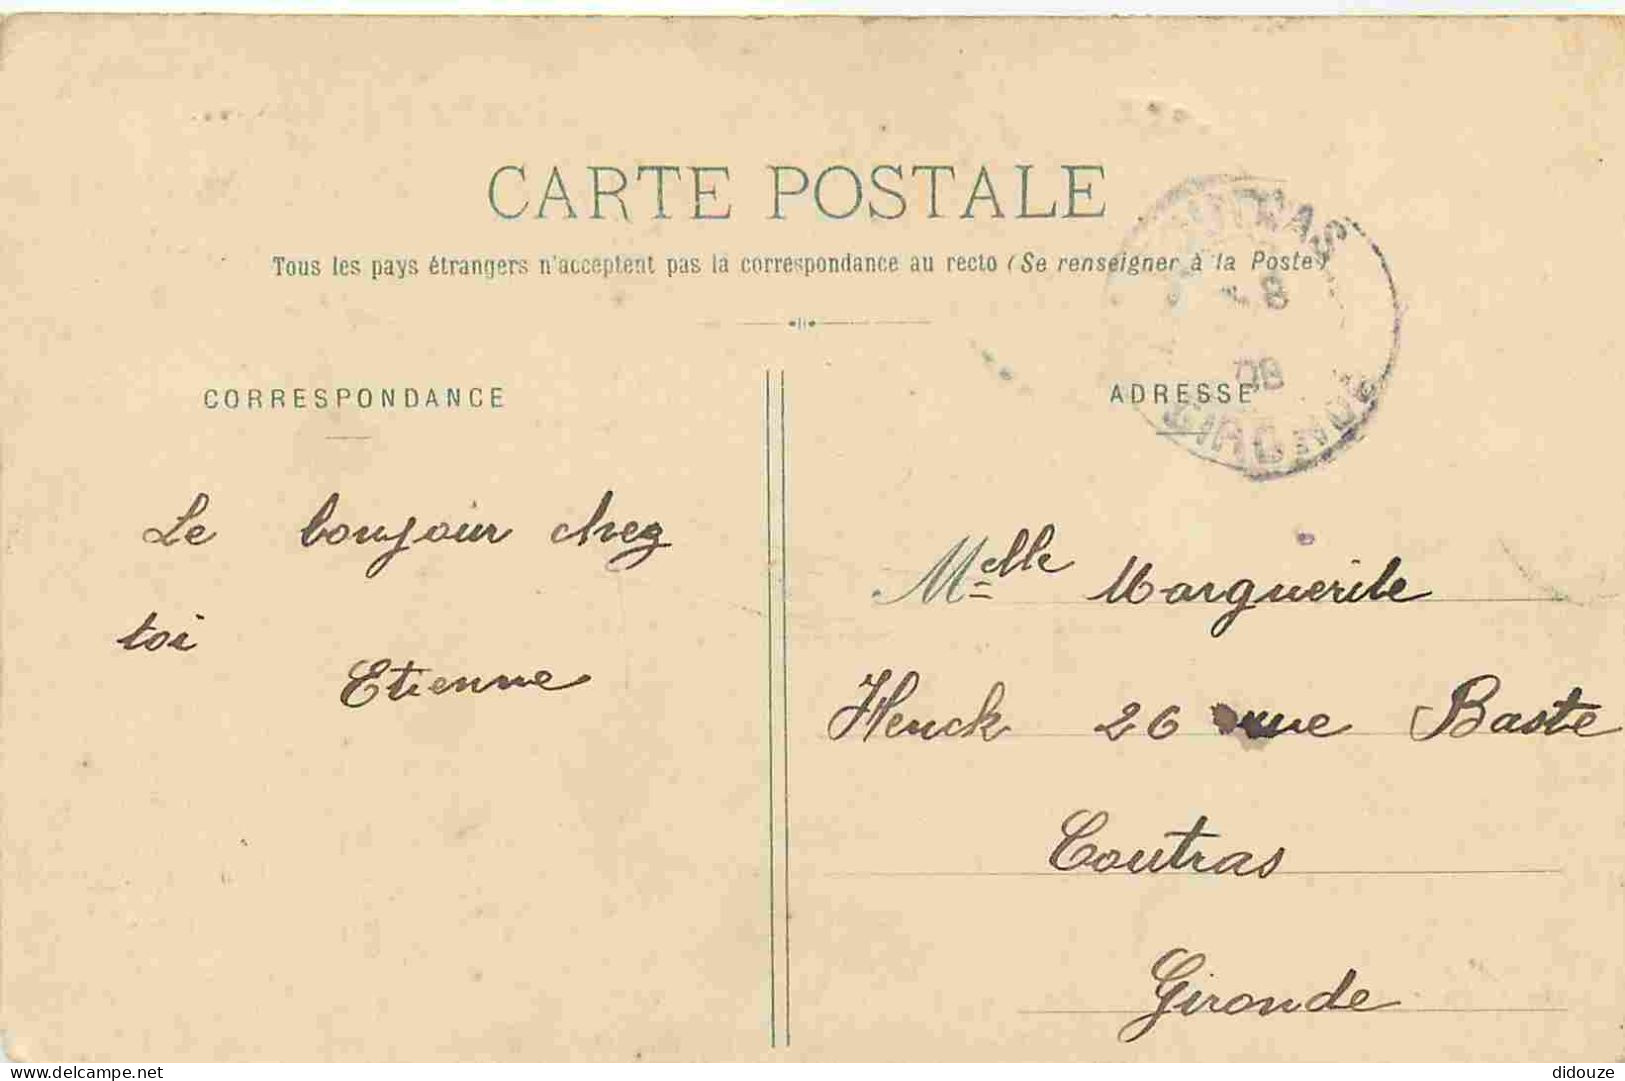 CARTE POSTALE
Tous les pays étrangers n'acceptent pas la correspondance au recto (Se renseigner à la Poste)
CORRESPONDANCE
Le bonjour chez
toi
Etienne
ADRESSE
COUTRAS
8
08
GIRONDE
Melle Marguerite
Henck 26 rue Baste
Coutras
Gironde
delcampe.net
didouze